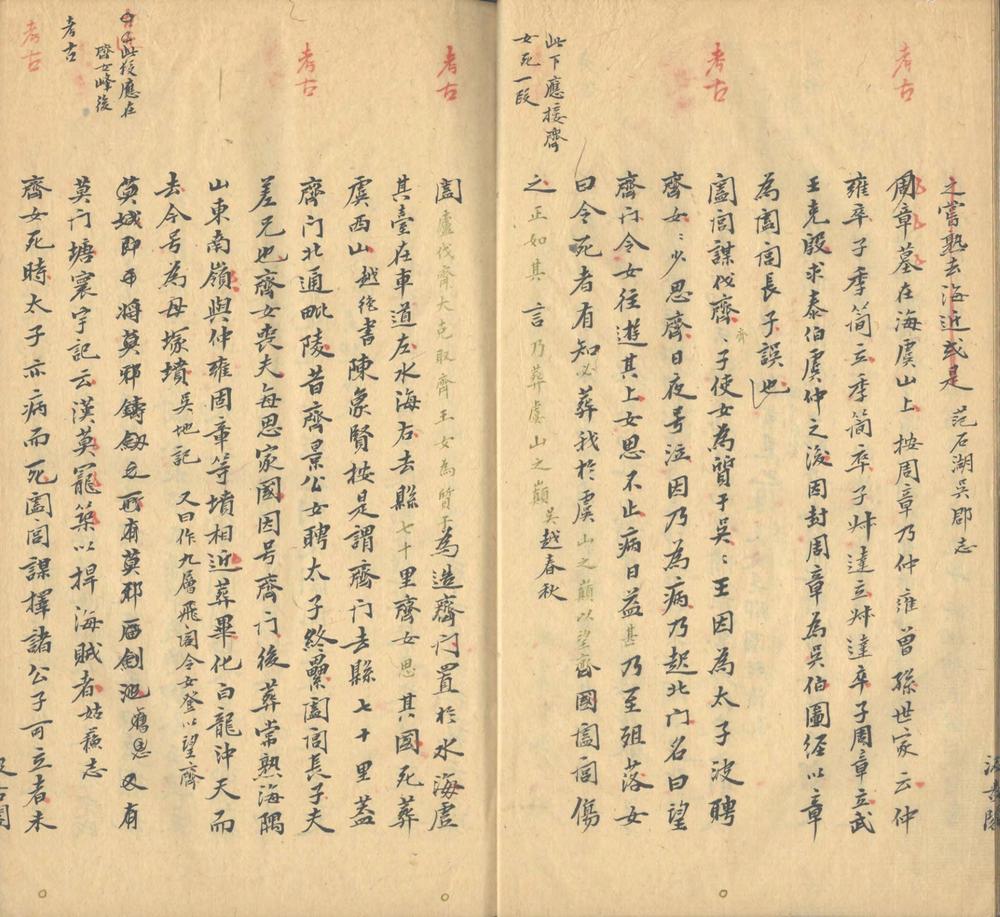 考古
考古
此下應接齊
女死一段
之嘗熟去海近或是 范石湖吳郡志
周章墓在海虞山上 按周章乃仲雍曾孫世家云仲
雍卒子季簡立季簡卒子叔達立叔達卒子周章立武
王克殷求泰伯虞仲之後因封周章為吳伯圖經以章
為闔閭長子誤也
闔閭謀伐齊齊子使女為質于吳吳王因為太子波聘
齊女女少思齊日夜号泣因乃為病乃起北门名曰望
齊门令女往遊其上女思不止病日益甚乃至殂落女
曰令死者有知必葬我於虞山之巔以望齊國闔閭傷
之正如其言乃葬虞山之巔 吳越春秋
考古
考古
考古
考古
此段應在
齊女峰後
闔廬伐齊大克取齊王女為質子為造齊门置於水海虛
其臺在車道左水海右去縣七十里齊女思其國死葬
虞西山 越绝書 陳象賢按是謂齊门去縣七十里蓋
齊门北通毗陵昔齊景公女聘太子終纍闔閭長子夫
差兄也齊女喪夫每思家國因号齊门後葬常熟海隅
山東南嶺與仲雍周章等墳相近葬畢化白龍沖天而
去今号為母塚墳 吳地記 又曰作九層飛閣令女登以望齊
莫城即 将莫邪鑄劔之所有莫邪 劍池 又有
莫门塘寰宇記云漢莫寵築以捍海贼者 姑蘇志
齊女死時太子亦病而死闔閭謀擇諸公子可立者未